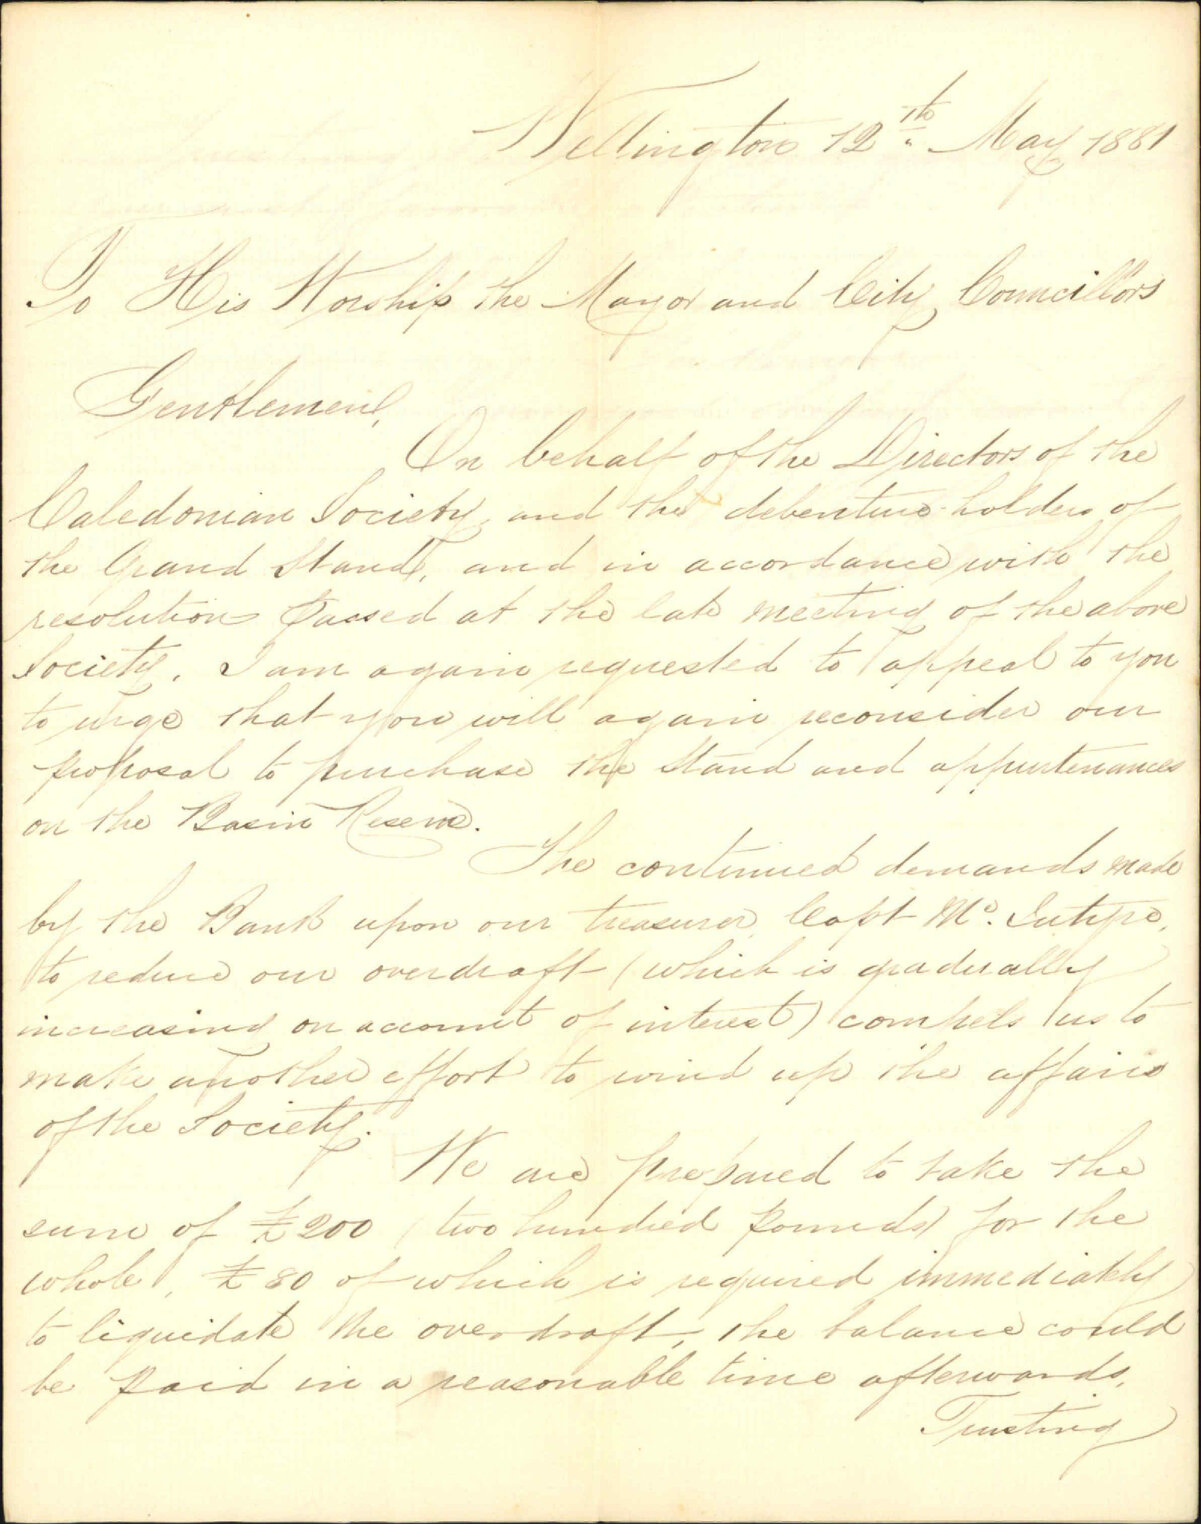 Wellington 12th May 1881
To His Worship the Mayor and City Councillors
Gentlemen,
On behalf of the Directors of the
Caledonian Society, and the debenture holders of
the Grand Stand, and in accordance with the
resolution passed at the late meeting of the above
Society. I am again requested to appeal to you
to urge that you will again reconsider our
proposal to purchase the Stand and appurtenances
on the Basin Reserve.
The continued demands made
by the Bank upon our treasurer, Capt Mc. Intyre,
to reduce our overdraft (which is gradually
increasing on account of interest) compels us to
make another effort to wind up the affairs
of the Society.
We are prepared to take the
sum of £200 (two hundred pounds) for the
whole, £80 of which is required immediately
to liquidate the overdraft, the balance could
be paid in a reasonable time afterwards.
Trusting